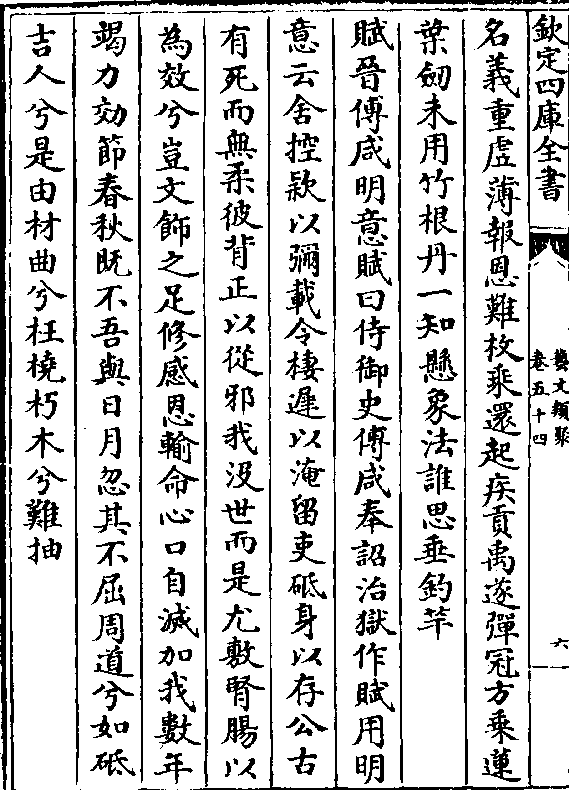 欽定四庫全書
藝文類聚
卷五十四
六
名義重虚薄報恩難枚乘還起疾貢禹遂彈冠方乘蓮
葉劒未用竹根丹一知懸象法誰思垂釣竿
賦晉傅咸明意賦曰侍御史傅咸奉詔治獄作賦用明
意云舍控款以彌載令棲遲以淹留吏砥身以存公古
有死而無柔彼背正以從邪我没世而是尤敷腎腸以
為效兮豈文飾之足修感恩輸命心口自滅加我數年
竭力効節春秋既不吾與日月忽其不屈周道兮如砥
吉人兮是由材曲兮枉橈朽木兮難抽